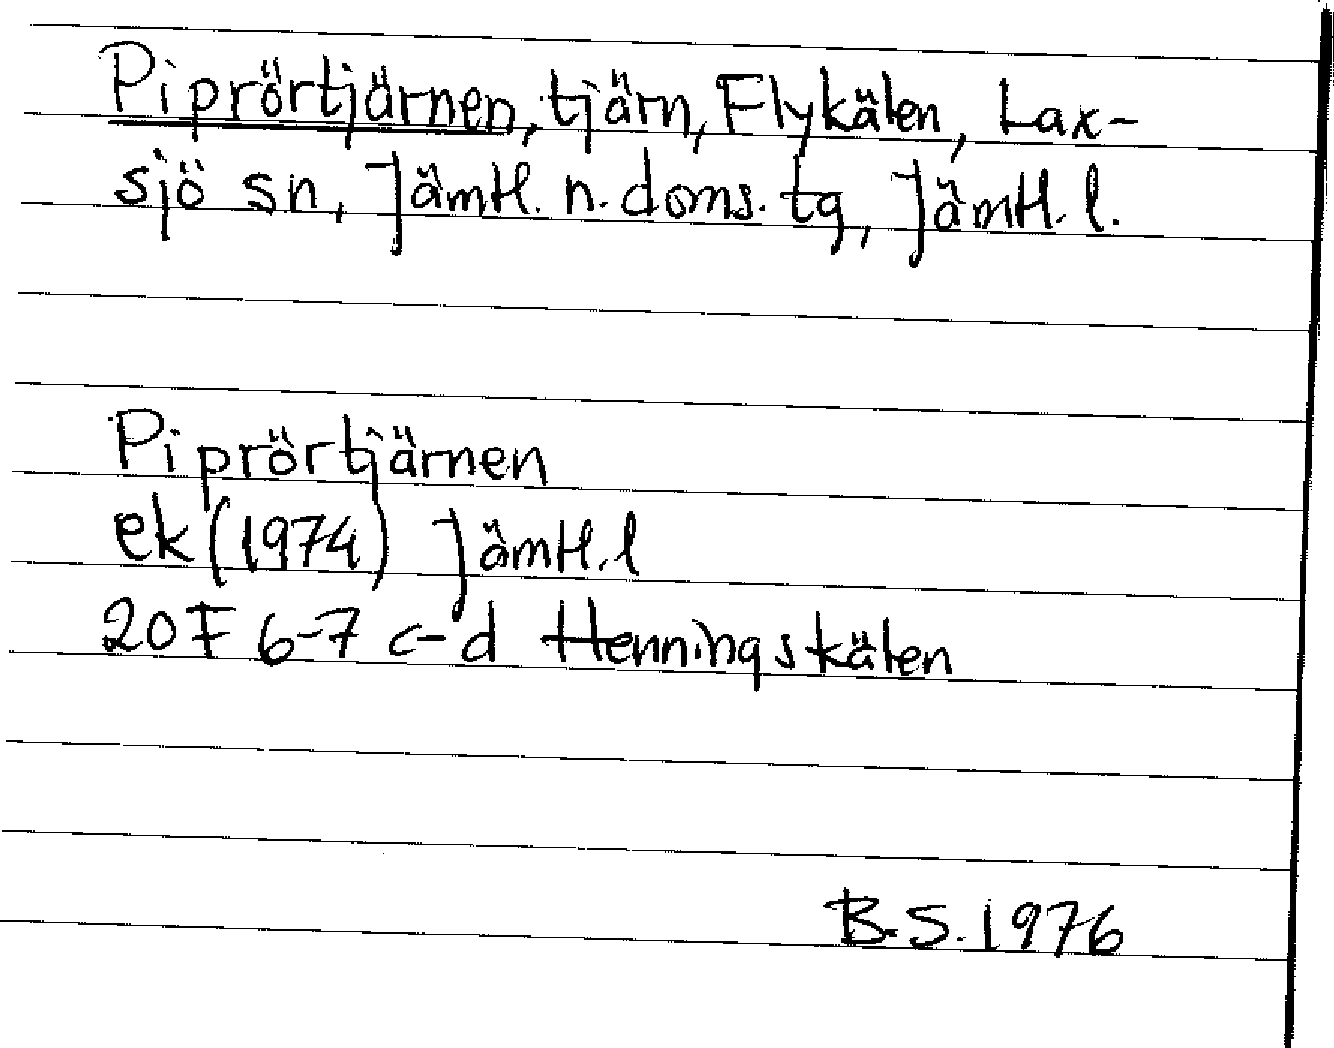 Piprörtjärnen, tjärn, Flykälen, Lax-
sjö sn, Jämtl. n. doms. tg, Jämtl. l.
Piprörtjärnen
ek (1974) Jämtl. l
20 F 6-7 c-d Henningskälen
B.S. 1976